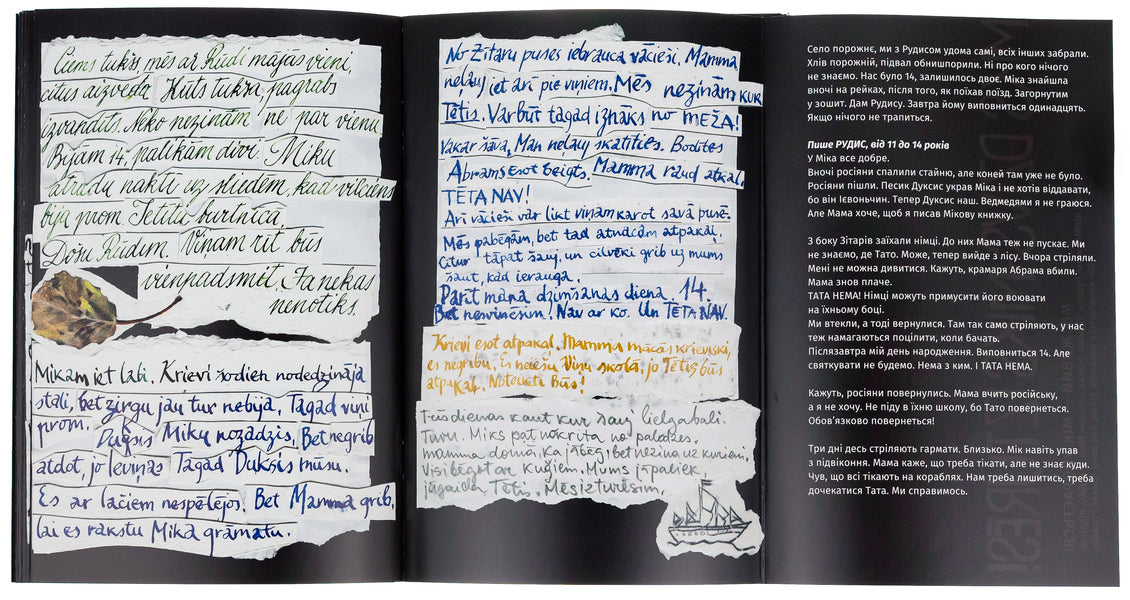 Ciems tukšs, mēs ar Rūdi mājās vieni,
citus aizveda. Kūts tukša, pagrabs
izvandīts. Neko nezinām ne par vienu.
Bijām 14, palikām divi. Miku
atradu naktī uz sliedēm, kad vilciens
bija prom. Ietītu burtnīcā.
Došu Rūdim. Viņam rīt būs
vienpadsmit. Ja nekas
nenotiks.
Mikam iet labi. Krievi šodien nodedzināja
stalli, bet zirgu jau tur nebija. Tagad viņi
prom. Duksis Miku nozadzis. Bet negrib
atdot, jo Ieviņas Tagad Duksis mūsu.
Es ar lāčiem nespēlējos. Bet Mamma grib,
lai es rakstu Mika grāmatu.
No Zītaru puses iebrauca vācieši. Mamma
neļauj iet arī pie viņiem. Mēs nezinām KUR
Tētis. Varbūt tagad iznāks no MEŽA!
Vakar šāva. Man neļauj skatīties. Bodītes
Abrams esot beigts. Mamma raud atkal.
TĒTA NAV!
Arī vācieši var likt viņam karot savā pusē.
Mēs pabēgām, bet tad atnācām atpakaļ.
Citur tāpat šauj, un cilvēki grib uz mums
šaut, kad ierauga.
Parīt mana dzimšanas diena. 14.
Bet nesvinēsim! Nav ar ko. Un TĒTA NAV.
Krievi esot atpakaļ. Mamma mācās krieviski,
es negribu. Es neiešu Viņu skolā, jo Tētis būs
atpakaļ. Noteikti Būs!
Trīs dienas kaut kur šauj lielgabali.
Tuvu. Miks pat nokrita no palodzes.
mamma domā, ka jābēg, bet nezina uz kurieni.
Visi bēgot ar kuģiem. Mums jāpaliek,
jāgaida Tētis. Mēs izturēsim.
Село порожнє, ми з Рудисом удома самі, всіх інших забрали.
Хлів порожній, підвал обнишпорили. Ні про кого нічого
не знаємо. Нас було 14, залишилось двоє. Міка знайшла
вночі на рейках, після того, як поїхав поїзд. Загорнутим
у зошит. Дам Рудису. Завтра йому виповниться одинадцять.
Якщо нічого не трапиться.
Пише РУДИС, від 11 до 14 років
У Міка все добре.
Вночі росіяни спалили стайню, але коней там уже не було.
Росіяни пішли. Песик Дуксис украв Міка і не хотів віддавати,
бо він Ієвоньчин. Тепер Дуксис наш. Ведмедями я не граюся.
Але Мама хоче, щоб я писав Мікову книжку.
З боку Зітарів заїхали німці. До них Мама теж не пускає. Ми
не знаємо, де Тато. Може, тепер вийде з лісу. Вчора стріляли.
Мені не можна дивитися. Кажуть, крамаря Абрама вбили.
Мама знов плаче.
ТАТА НЕМА! Німці можуть примусити його воювати
на їхньому боці.
Ми втекли, а тоді вернулися. Там так само стріляють, у нас
теж намагаються поцілити, коли бачать.
Післязавтра мій день народження. Виповниться 14. Але
святкувати не будемо. Нема з ким. І ТАТА НЕМА.
Кажуть, росіяни повернулись. Мама вчить російську,
а я не хочу. Не піду в їхню школу, бо Тато повернеться.
Обов’язково повернеться!
Три дні десь стріляють гармати. Близько. Мік навіть упав
з підвіконня. Мама каже, що треба тікати, але не знає куди.
Чув, що всі тікають на кораблях. Нам треба лишитись, треба
дочекатися Тата. Ми справимось.